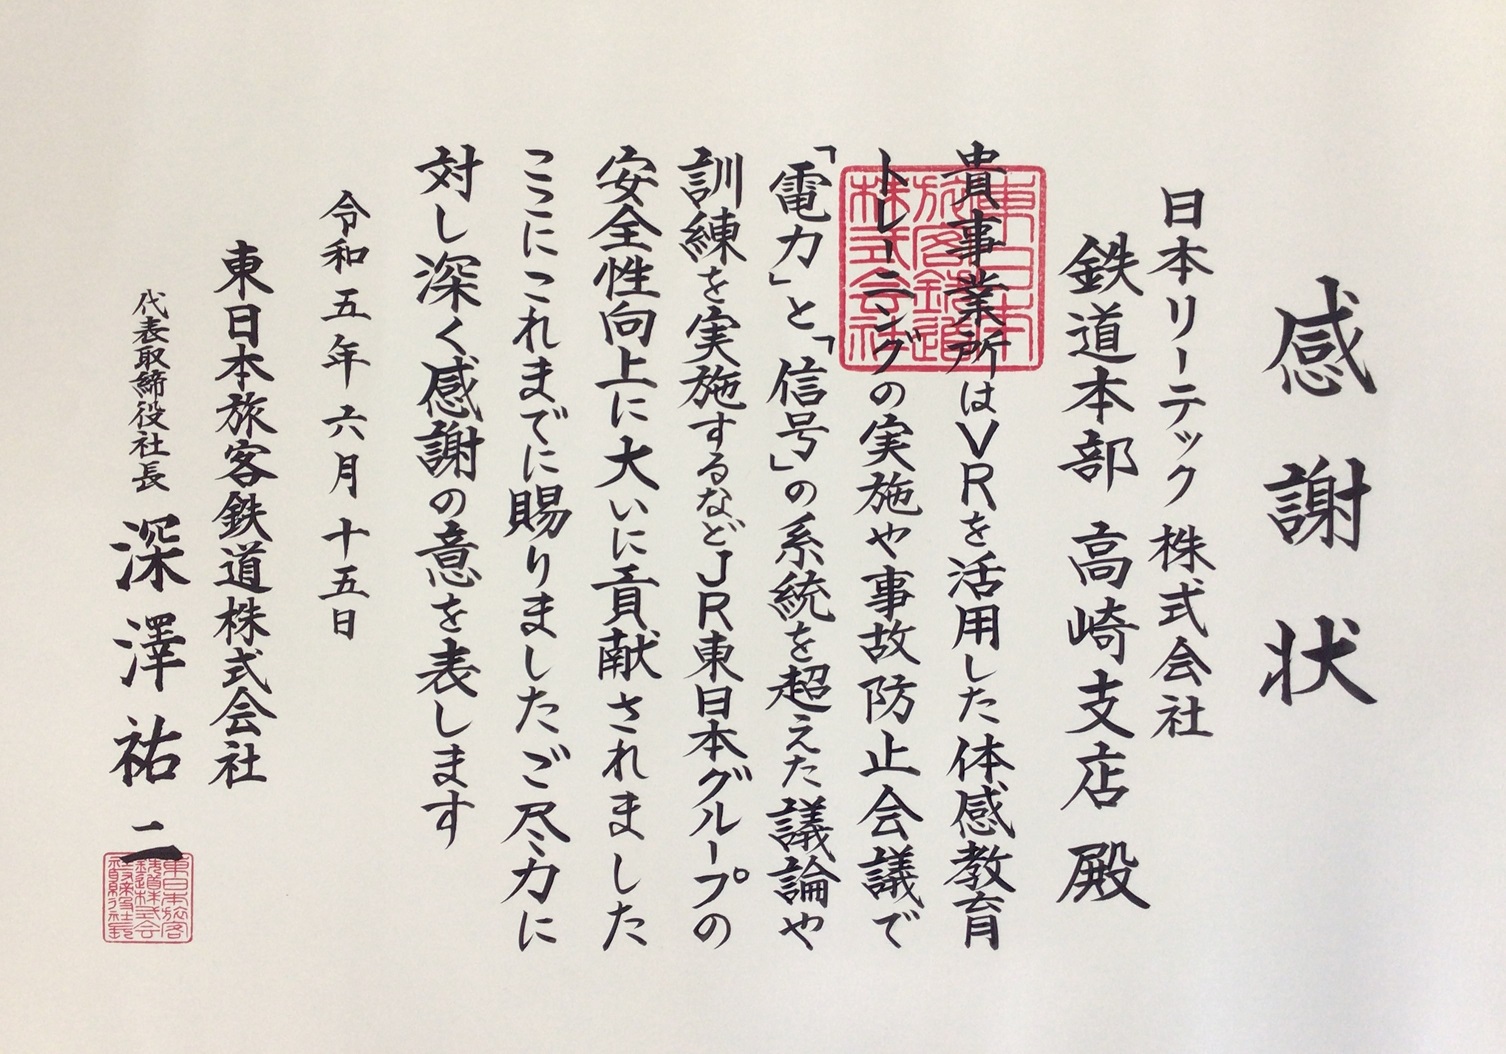 感謝状
日本リーテック株式会社
鉄道本部 高崎支店 殿
貴事業所はVRを活用した体感教育
トレーニングの実施や事故防止会議で
「電力」と「信号」の系統を超えた議論や
訓練を実施するなどJR東日本グループの
安全性向上に大いに貢献されました
ここにこれまでに賜りましたご尽力に
対し深く感謝の意を表します
令和五年六月十五日
東日本旅客鉄道株式会社
代表取締役社長 深澤祐二
東日本
旅客鉄道
株式会社